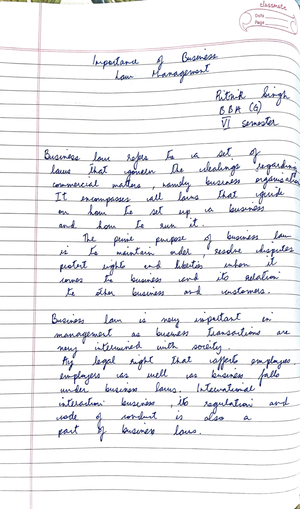 classmate
Date
Page
Importance of Business
Law Management
Ritnik Singh
BBA (G)
VI semester
Business law refers to a set of
laws that govern the dealings regarding
commercial matters, namely business organisation
It encompasses all laws that guide
on how to set up a business
and how to run it.
The prime purpose of business law
is to maintain order, resolve disputes,
protect rights and liberties when it
comes to business and its relation
to other business and customers.
Business law is very important in
management as business transactions are
very intermined with society.
Any legal right that affects employees
employers as well as business falls
under business laws. International
interaction business, its regulation and
code of conduct is also a
part of business laws.